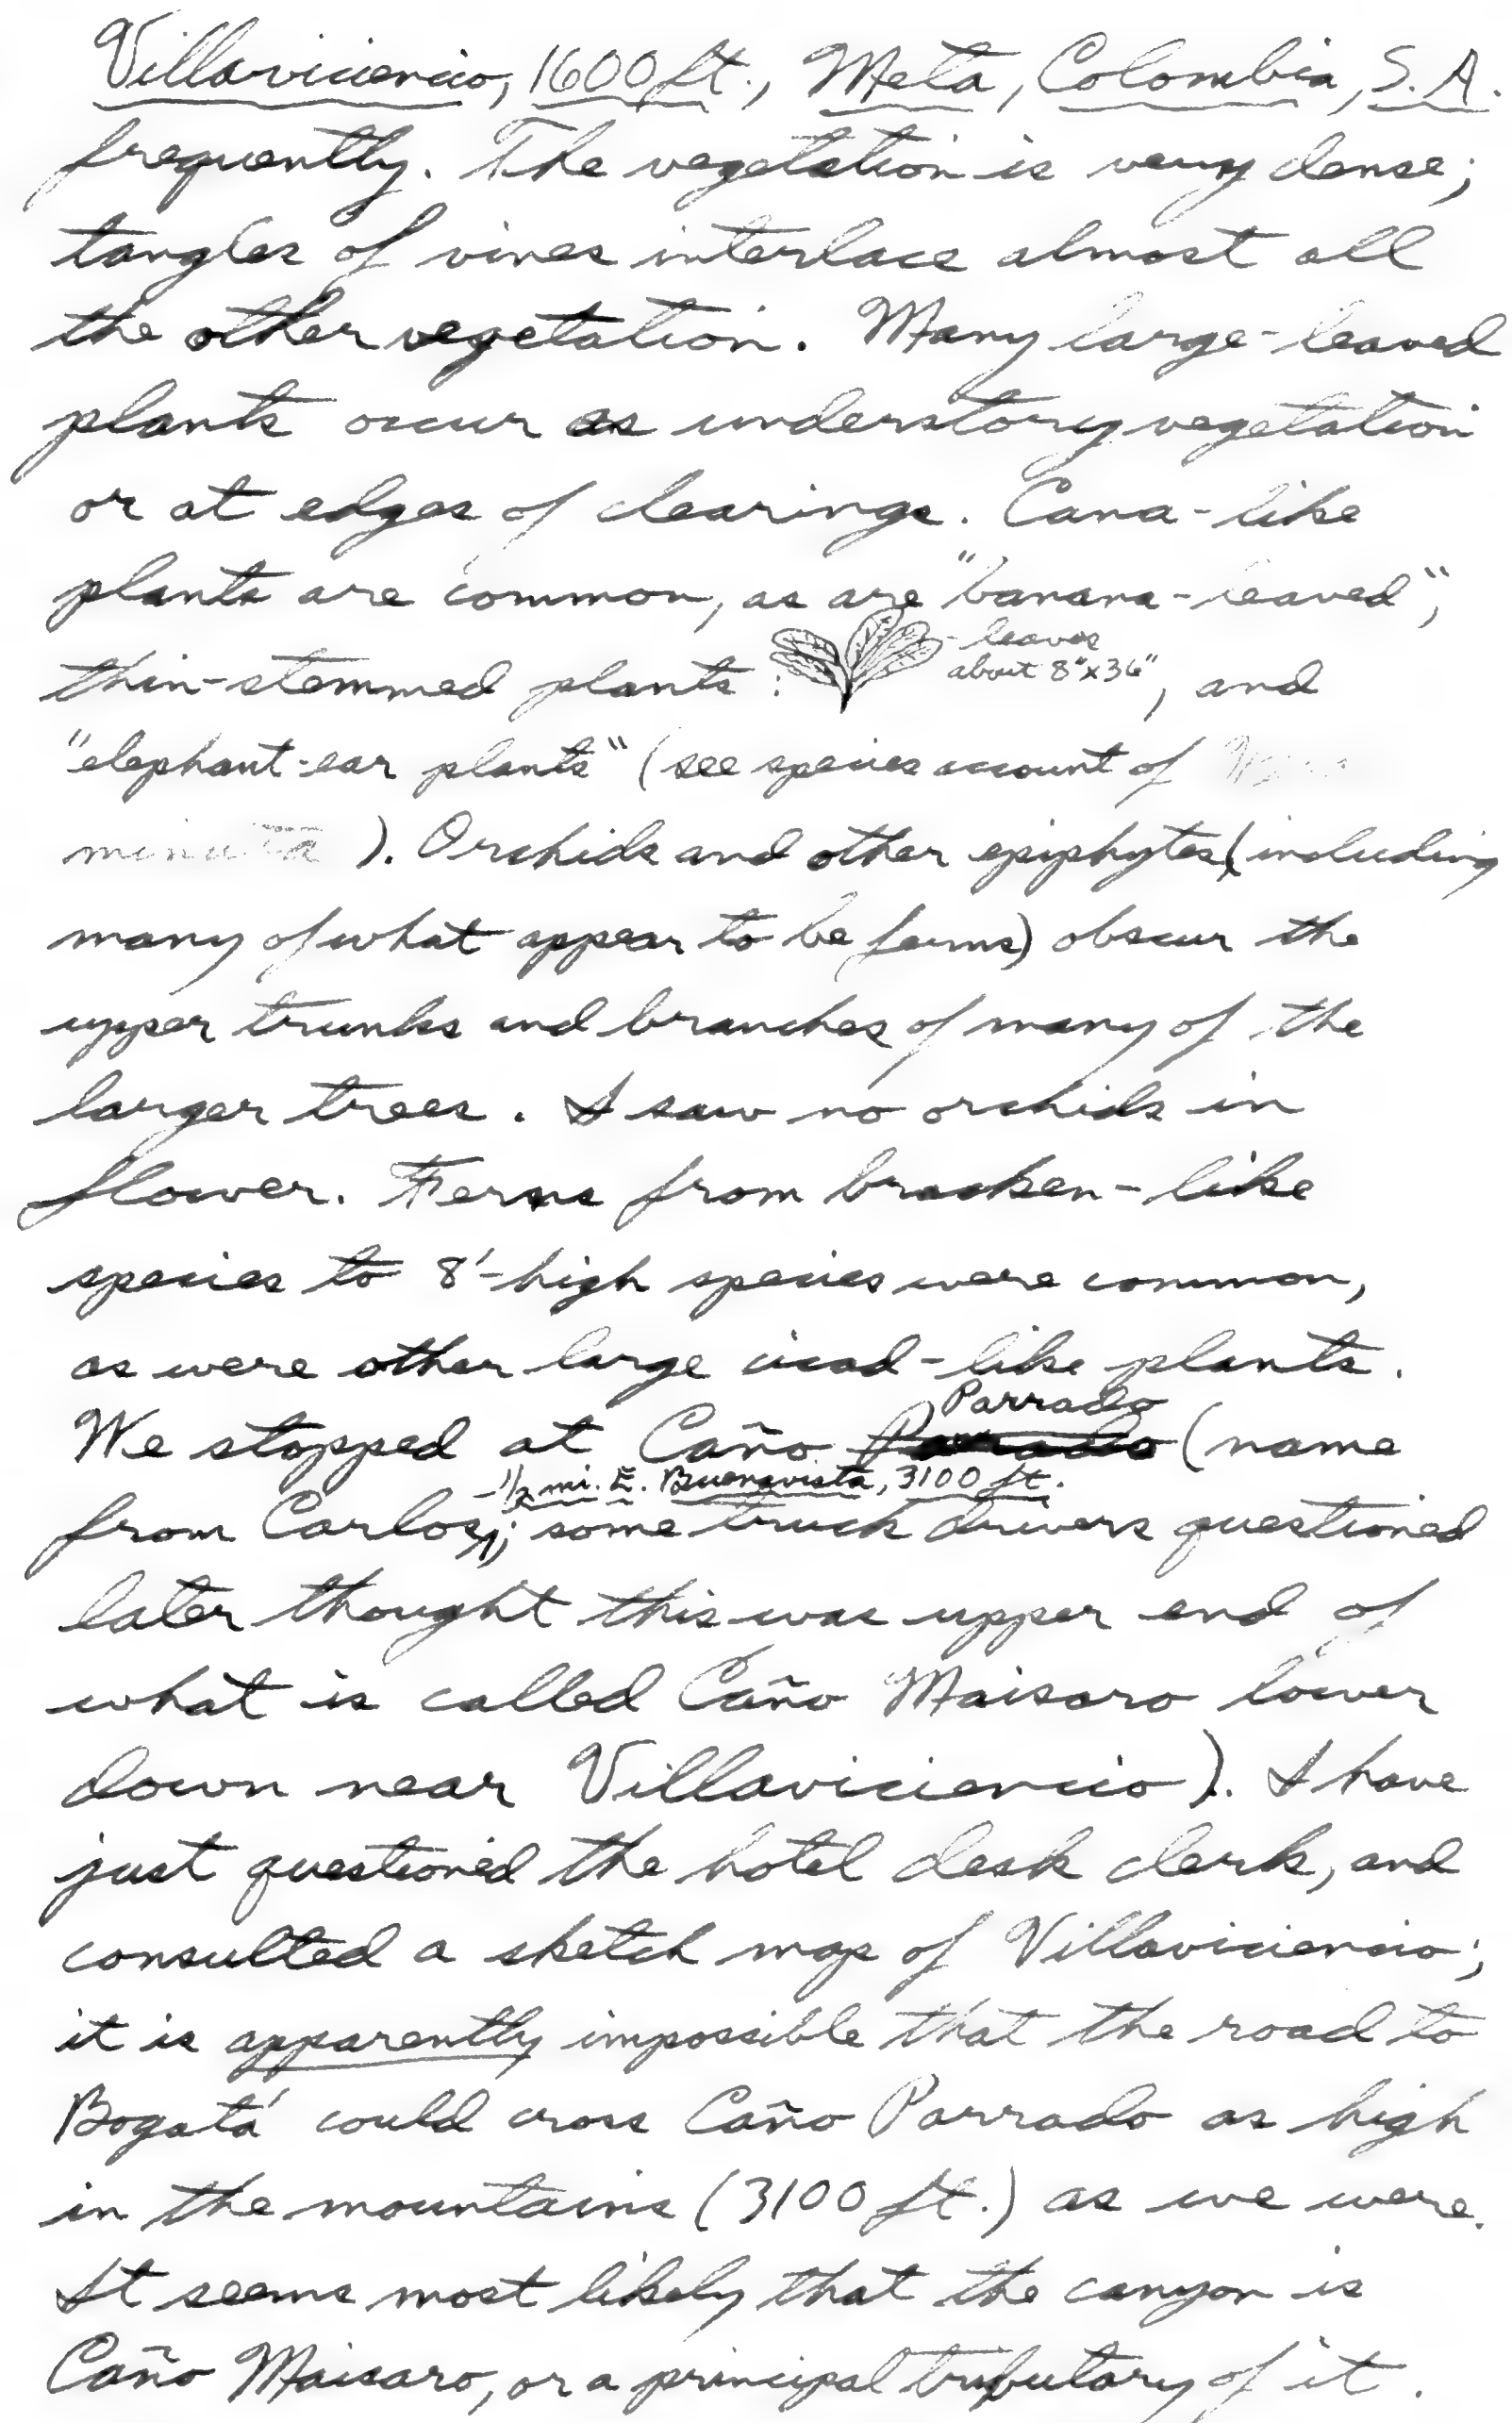 Villaviciencio, 1600 ft., Meta, Colombia, S.A.
frequently. The vegetation is very dense;
tangles of vines interlace almost all
the other vegetation. Many large-leaved
plants occur as understory vegetation
or at edges of clearings. Cana-like
plants are common, as are "banana-leaved",
thin-stemmed plants: - leaves
about 8"x36", and
"elephant-ear plants" (see species account of
minuta). Orchids and other epiphytes (including
many of what appear to be ferns) obscur the
upper trunks and branches of many of the
larger trees. I saw no orchids in
flower. Ferns from bracken-like
species to 8'-high species were common,
as were other large cicad-like plants.
We stopped at Caño Parrado (name
from Carlos; - 1/2 mi. E. Buenavista, 3100 ft.
some truck drivers questioned
later thought this was upper end of
what is called Caño Maisaro lower
down near Villaviciencio). I have
just questioned the hotel desk clerk, and
consulted a sketch map of Villaviciencio;
it is apparently impossible that the road to
Bogatá could cross Caño Parrado as high
in the mountains (3100 ft.) as we were.
It seems most likely that the canyon is
Caño Maisaro, or a principal tributary of it.